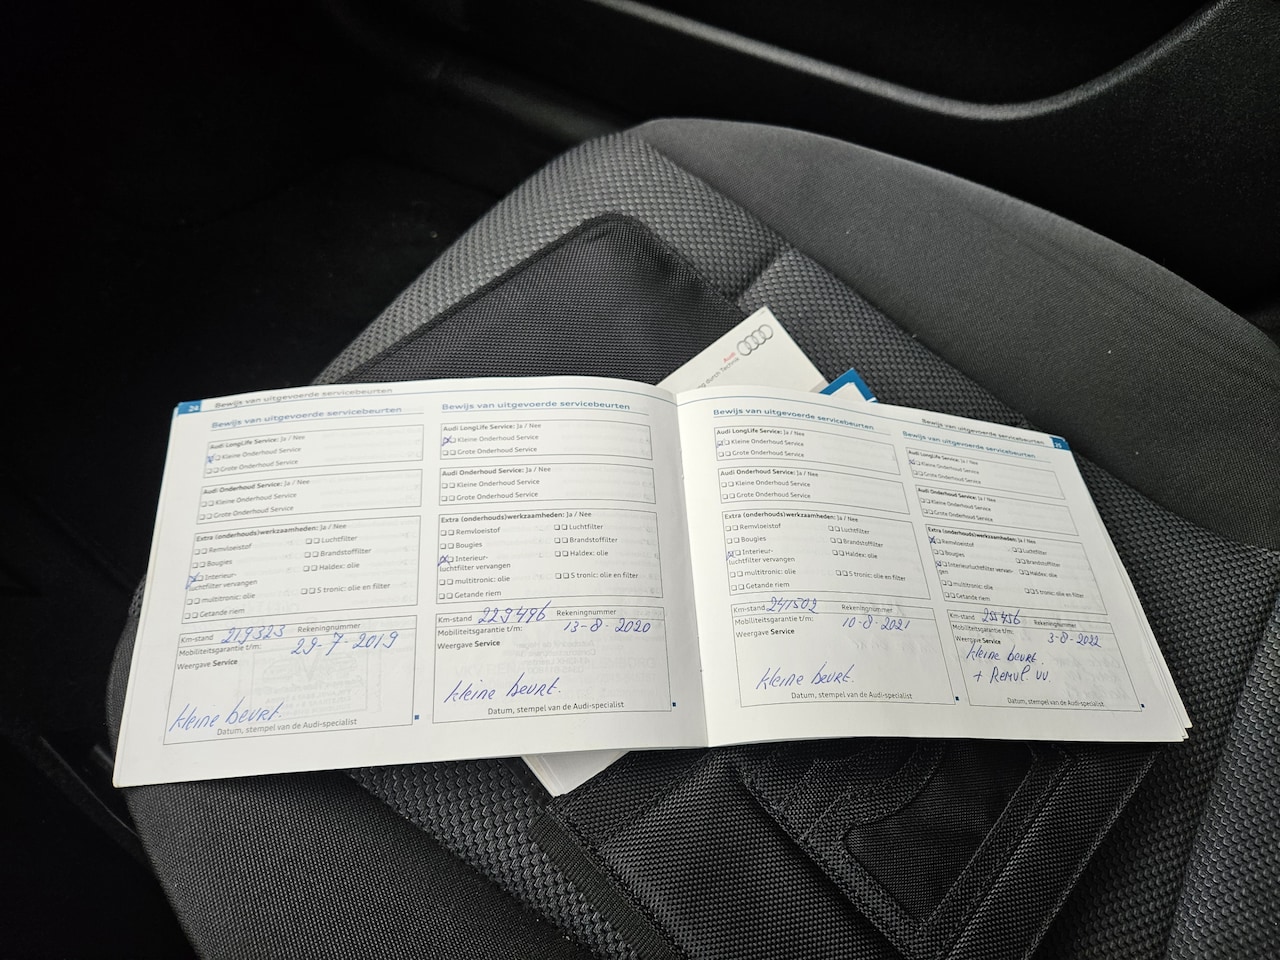 24
Bewijs van uitgevoerde servicebeurten
Bewijs van uitgevoerde servicebeurten
Audi LongLife Service: Ja / Nee
Kleine Onderhoud Service
Grote Onderhoud Service
Audi Onderhoud Service: Ja / Nee
Kleine Onderhoud Service
Grote Onderhoud Service
Extra (onderhouds)werkzaamheden: Ja / Nee
Remvloeistof
Luchtfilter
Bougies
Brandstoffilter
Interieur-
luchtfilter vervangen
Haldex: olie
multitronic: olie
S tronic: olie en filter
Getande riem
Km-stand 219323 Rekeningnummer
Mobiliteitsgarantie t/m: 29-7-2019
Weergave Service
kleine beurt.
Datum, stempel van de Audi-specialist
Bewijs van uitgevoerde servicebeurten
Audi LongLife Service: Ja / Nee
Kleine Onderhoud Service
Grote Onderhoud Service
Audi Onderhoud Service: Ja / Nee
Kleine Onderhoud Service
Grote Onderhoud Service
Extra (onderhouds)werkzaamheden: Ja / Nee
Remvloeistof
Luchtfilter
Bougies
Brandstoffilter
Interieur-
luchtfilter vervangen
Haldex: olie
multitronic: olie
S tronic: olie en filter
Getande riem
Km-stand 229496 Rekeningnummer
Mobiliteitsgarantie t/m: 13-8-2020
Weergave Service
kleine beurt.
Datum, stempel van de Audi-specialist
Bewijs van uitgevoerde servicebeurten
Audi LongLife Service: Ja / Nee
Kleine Onderhoud Service
Grote Onderhoud Service
Audi Onderhoud Service: Ja / Nee
Kleine Onderhoud Service
Grote Onderhoud Service
Extra (onderhouds)werkzaamheden: Ja / Nee
Remvloeistof
Luchtfilter
Bougies
Brandstoffilter
Interieur-
luchtfilter vervangen
Haldex: olie
multitronic: olie
S tronic: olie en filter
Getande riem
Km-stand 241502 Rekeningnummer
Mobiliteitsgarantie t/m: 10-8-2021
Weergave Service
kleine beurt.
Datum, stempel van de Audi-specialist
Bewijs van uitgevoerde servicebeurten
25
Bewijs van uitgevoerde servicebeurten
Audi LongLife Service: Ja / Nee
Kleine Onderhoud Service
Grote Onderhoud Service
Audi Onderhoud Service: Ja / Nee
Kleine Onderhoud Service
Grote Onderhoud Service
Extra (onderhouds)werkzaamheden: Ja / Nee
Remvloeistof
Luchtfilter
Bougies
Brandstoffilter
Interieurluchtfilter vervan-
gen
Haldex: olie
multitronic: olie
S tronic: olie en filter
Getande riem
Km-stand Rekeningnummer
Mobiliteitsgarantie t/m: 3-8-2022
Weergave Service
kleine beurt.
+ Remvl. vv.
Datum, stempel van de Audi-specialist
Audi
durch Technik